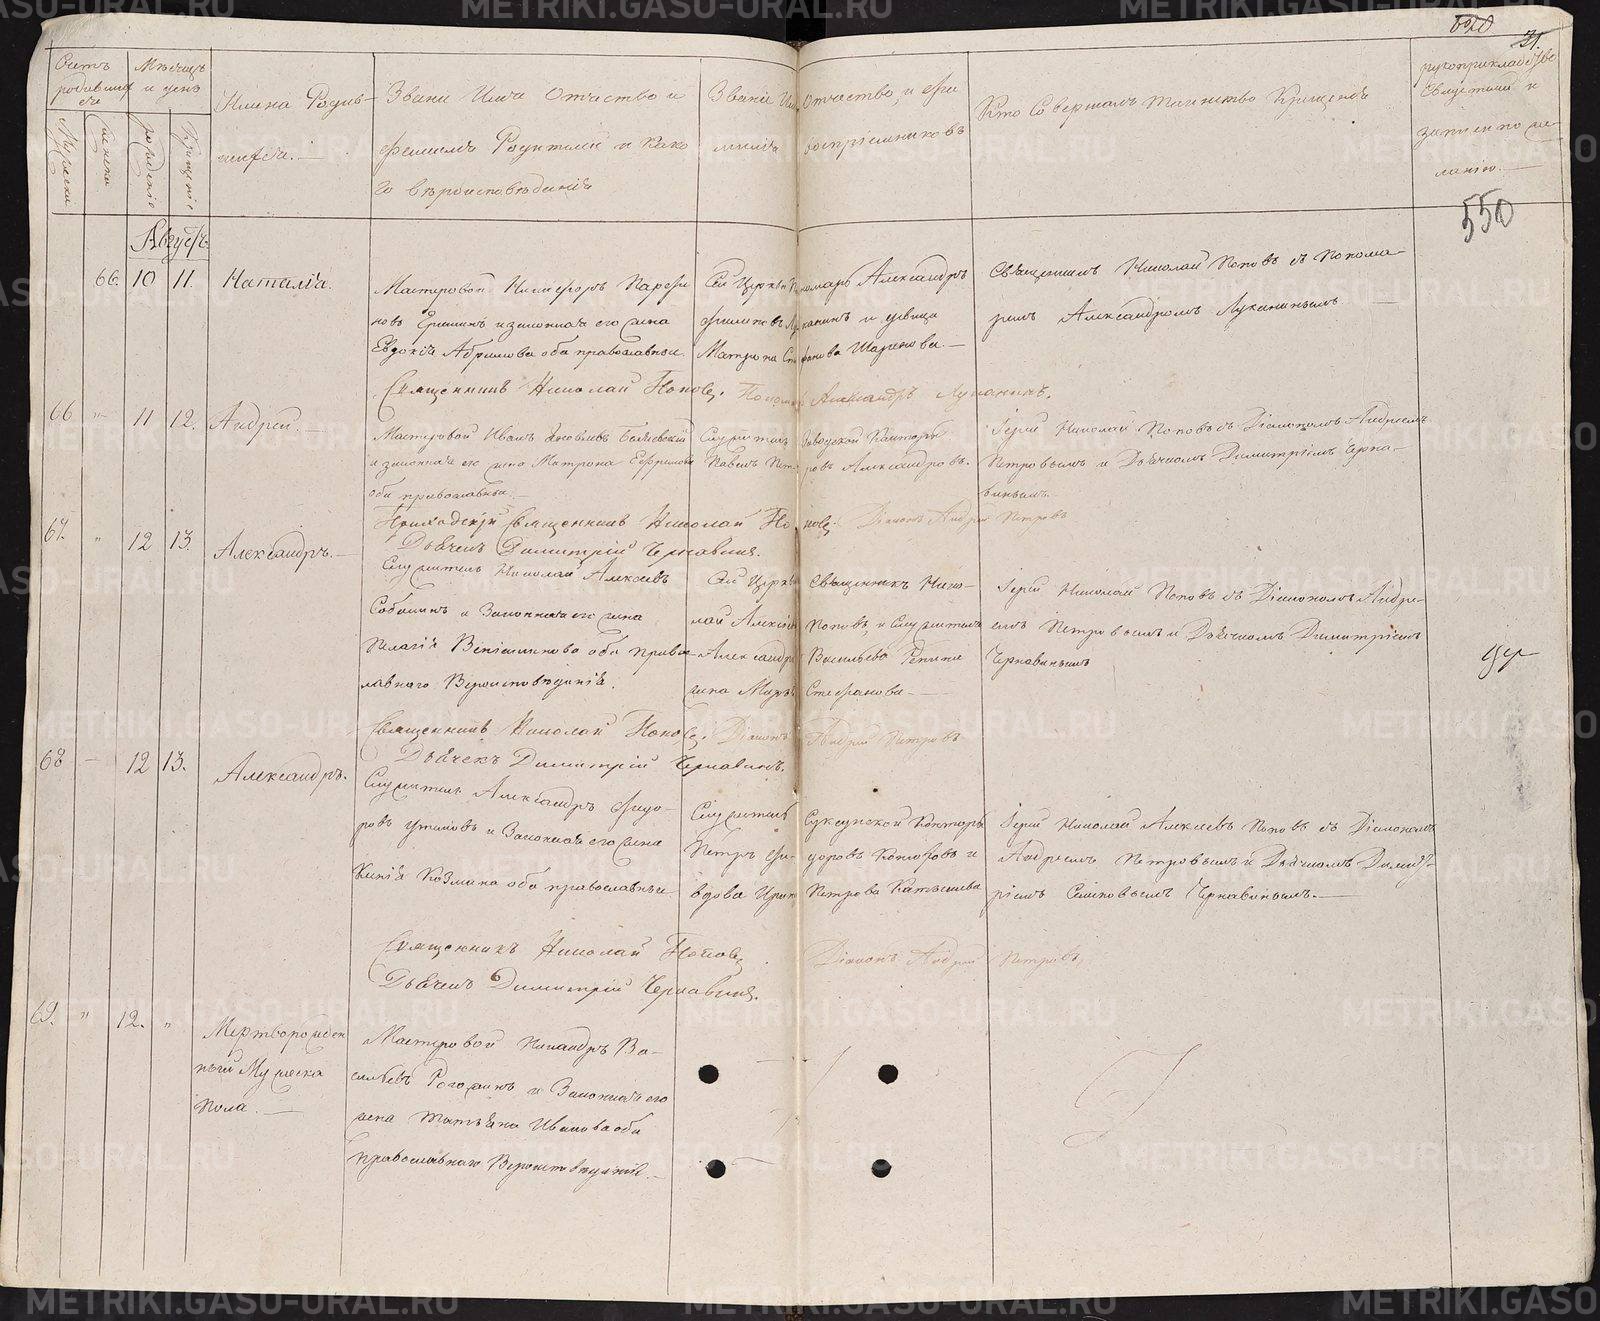 550
31.
Счетъ родившихся
Мѣсяцъ и день
Имена Родив-
шихся. —
Званiе Имя Отчество и
фамилiя Родителей и Како
го вѣроисповѣданiя
Званiе Имя Отчество, и фа
милiя воспрiемниковъ
Кто Совершалъ таинство Крещенiя
рукоприкладство
Свидетелей и
записи по же
ланiю. —
рожденiя
Крещенiе
550
Августъ
66. 10 11. Наталiя.
Мастеровой Никифоръ
и законная его жена
Евдокiя Абрамова оба православные
Сей Церкви Пономарь Александръ
Филиповъ Луканинъ и девица
Матрона Стефанова Шарапова. —
Священникъ Николай Поповъ съ Понома-
ремъ Александромъ Луканинымъ —
Священникъ Николай Поповъ. Пономарь Александръ Луканинъ.
66 " 11 12. Андрей. —
Мастеровой Иванъ Яковлевъ
и законная его жена Матрона Ефимова
оба православные. —
Служитель Заводской Конторы
Павелъ Петровъ Александровъ.
Iерей Николай Поповъ съ Дiакономъ Андреемъ
Петровымъ и Дьячкомъ Димитрiемъ Черна-
винымъ.
Приходскiй Священникъ Николай Поповъ. Дiаконъ Андрей Петровъ
Дьячекъ Димитрiй Чернавинъ.
67. " 12 13. Александръ. —
Служитель Николай Алексеевъ
Собакинъ и Законная его жена
Пелагiя Венiаминова оба право-
славнаго Вероисповеданiя.
Сей Церкви Священникъ Нико-
лай Алексiевъ Поповъ, и Служителя
Александра Васильева Репина
жена Марья Стефанова —
Iерей Николай Поповъ съ Дiакономъ Андре-
емъ Петровымъ и Дьячкомъ Димитрiемъ
Чернавинымъ
Священникъ Николай Поповъ. Дiаконъ Андрей Петровъ
Дьячекъ Димитрiй Чернавинъ.
68 — 12 13. Александръ.
Служитель Александръ Фидо-
ровъ Утковъ и Законная его жена
Ксенiя Козмина оба православные
Служитель Суксунской Конторы
Петръ Фидоровъ и
вдова Ирина Петрова
Iерей Николай Алексеевъ Поповъ съ Дiакономъ
Андреемъ Петровымъ и Дьячкомъ Димит-
рiемъ Чернавинымъ. —
Священникъ Николай Поповъ. Дiаконъ Андрей Петровъ,
Дьячекъ Димитрiй Чернавинъ.
69. " 12. " Мертворожден
ный Мужеска
Пола. —
Мастеровой Никандръ Ва-
сильевъ Рогожинъ и Законная его
жена Татьяна Иванова оба
Православнаго Вероисповеданiя. —
METRIKI.GASO-URAL.RU